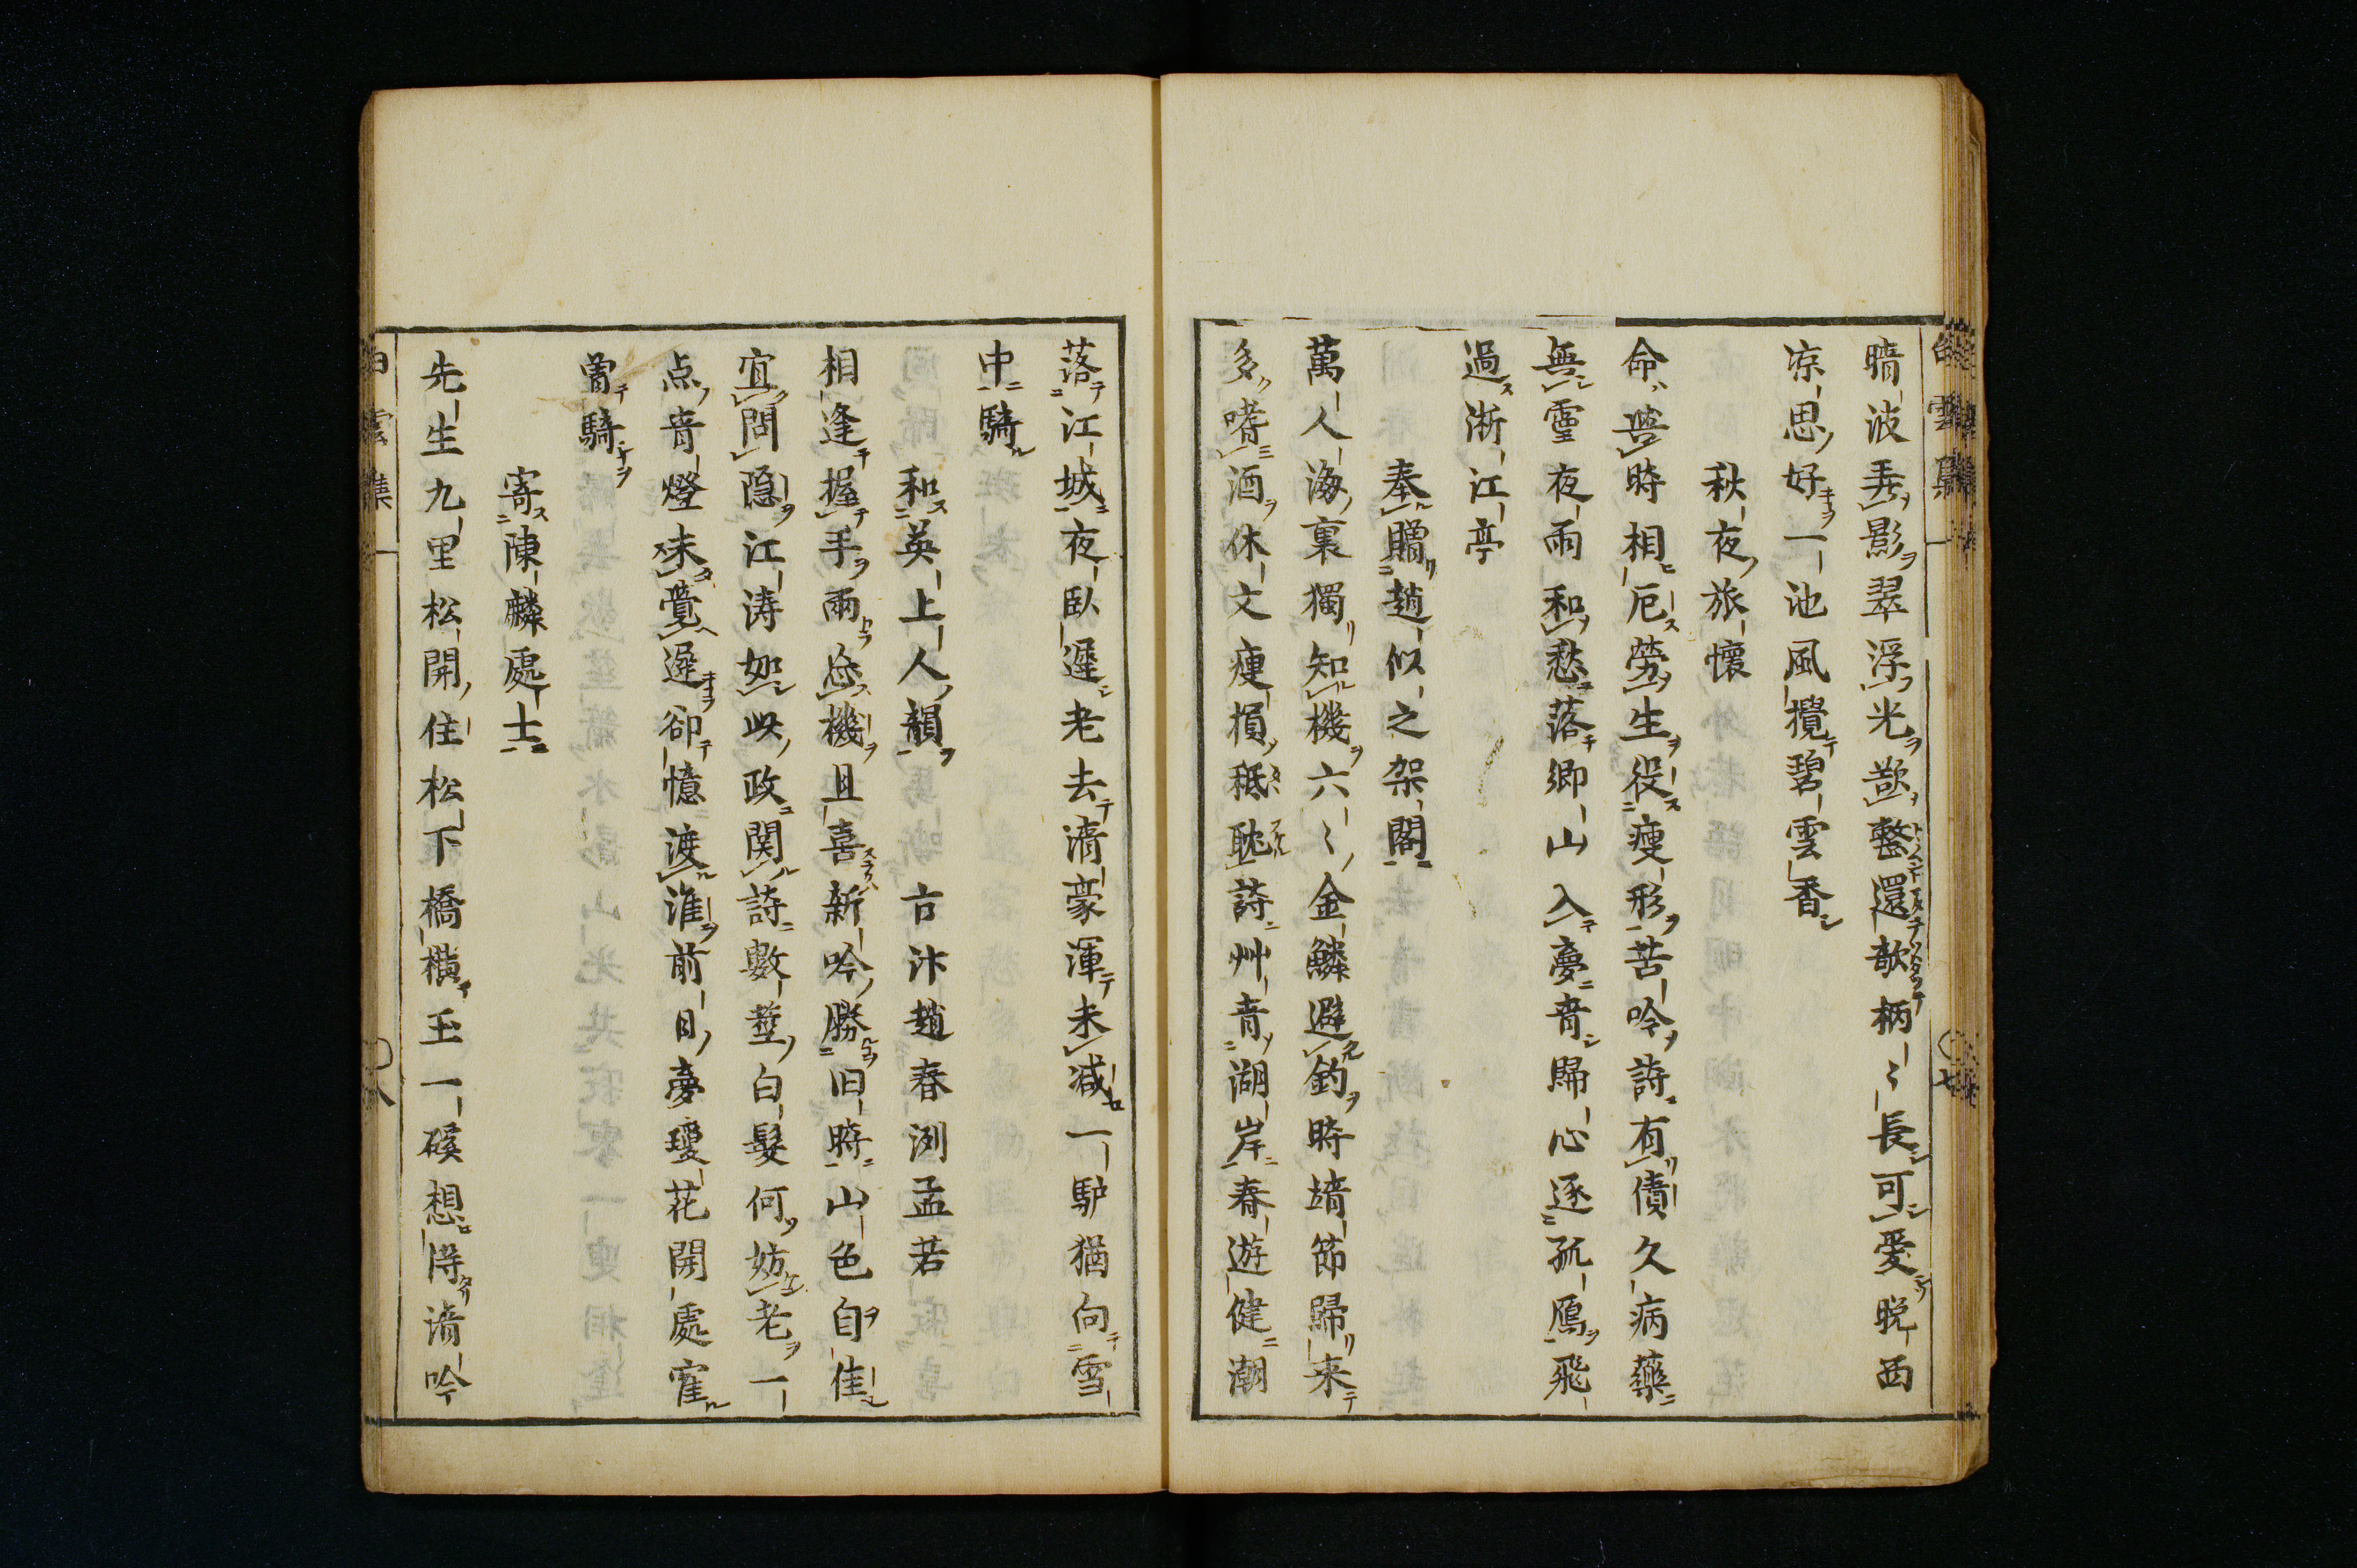 晴波弄影翠浮光欹整還欹柄〻長可愛晚西
凉思好一池風攪碧雲香
秋夜旅懷
命與時相厄勞生役瘦形苦吟詩有債久病藥
無靈夜雨和愁落鄉山入夢青歸心逐孤鴈飛
過淅江亭
奉贈趙似之架閣
萬人海裏獨知機六〻金鱗避釣時靖節歸来
多嗜酒休文瘦損秪耽詩艸青湖岸春遊健潮
落江城夜臥遲老去清豪渾未减一驴猶向雪
中騎
和英上人韻 古汴趙春洌孟若
相逢握手兩忘機且喜新吟勝旧時山色自佳
宜問隐江涛如此政関詩數莖白髮何妨老一
点青燈未覺遲卻憶渡淮前日夢瓊花開處寉
曾騎
寄陳麟處士
先生九里松開住松下橋橫玉一磎想得清吟
白雲集一 七
白雲集一 八